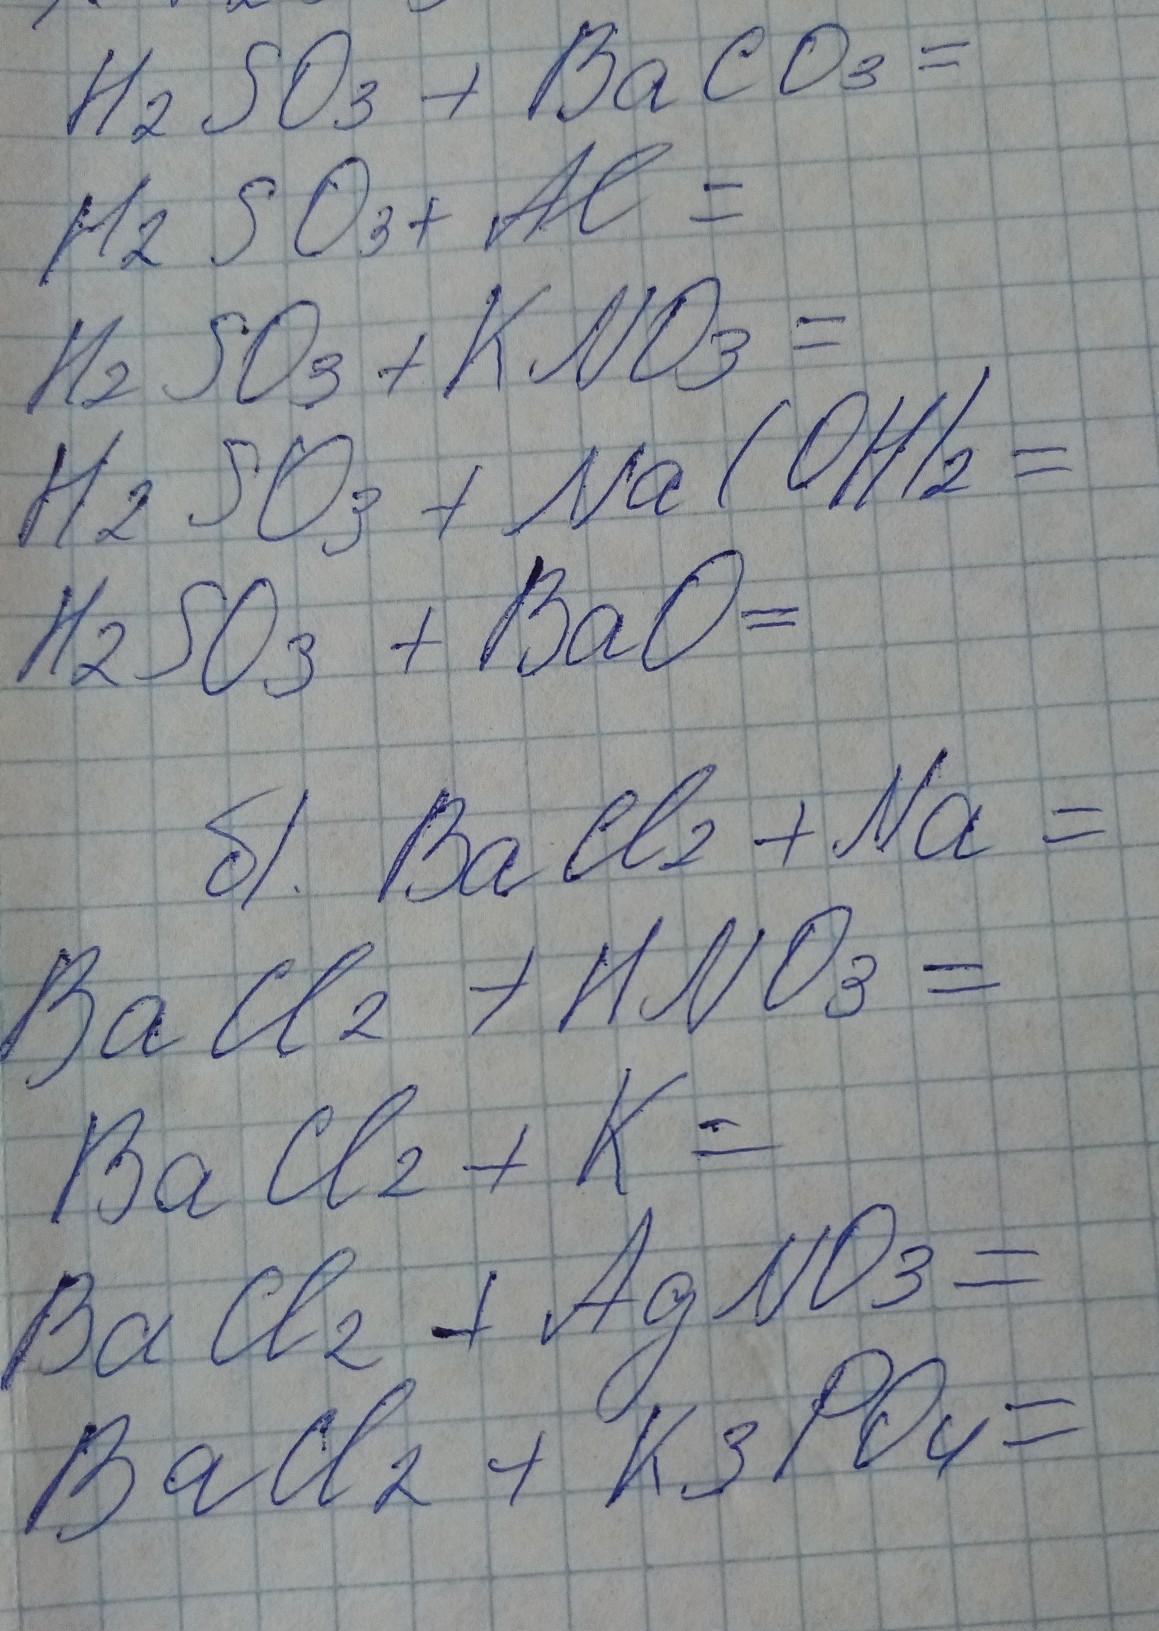 H2SO3 + BaCO3 =
H2SO3 + Al =
H2SO3 + KNO3 =
H2SO3 + Na(OH)2 =
H2SO3 + BaO =
б). BaCl2 + Na =
BaCl2 + HNO3 =
BaCl2 + K =
BaCl2 + AgNO3 =
BaCl2 + K3PO4 =